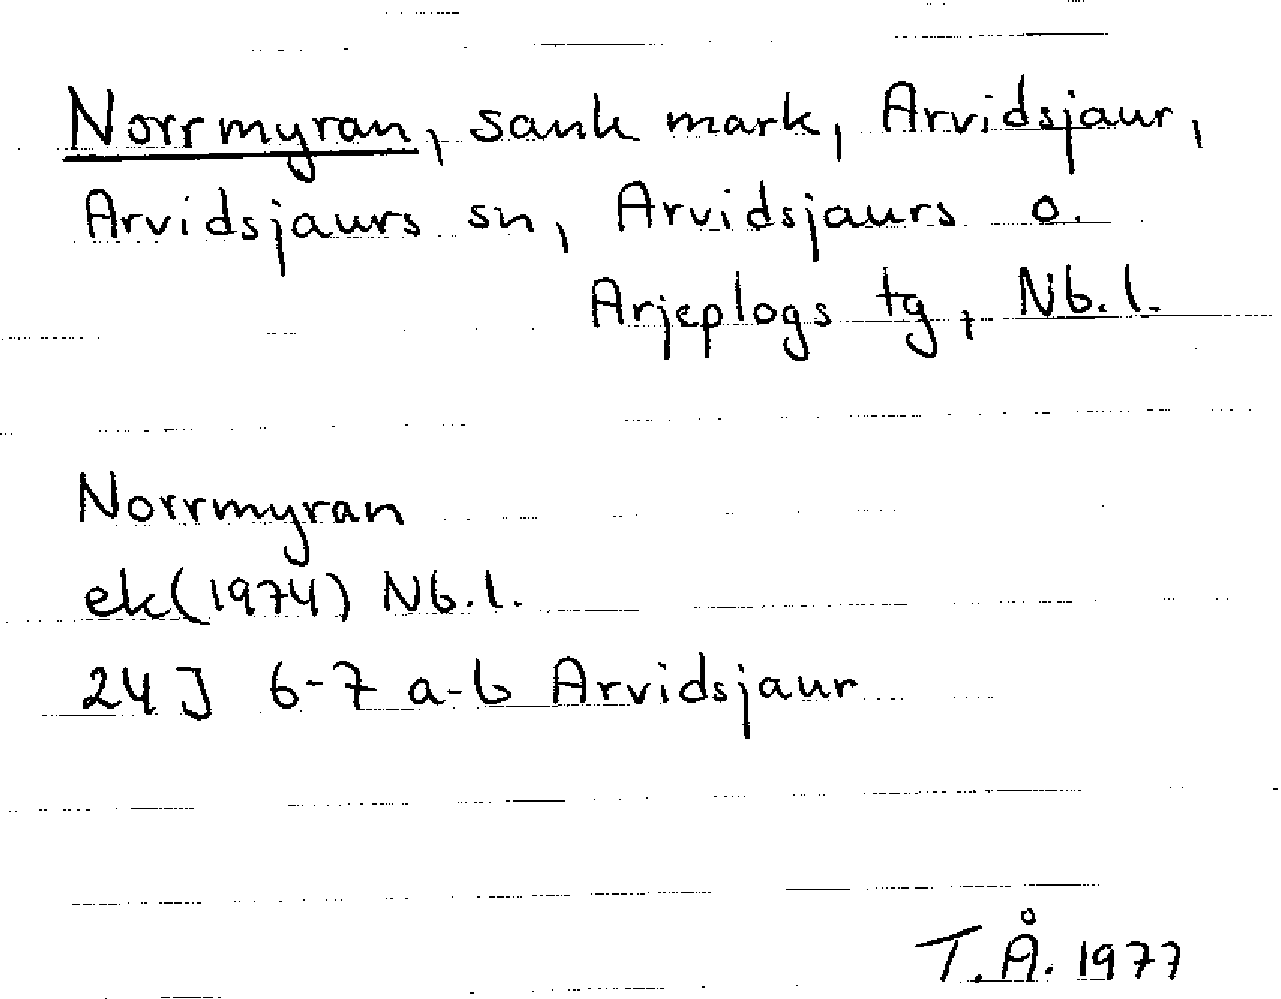 Norrmyran, sank mark, Arvidsjaur,
Arvidsjaurs sn, Arvidsjaurs o.
Arjeplogs tg, Nb.l.
Norrmyran
ek(1974) Nb.l.
24 J 6-7 a-b Arvidsjaur
T.Å. 1977